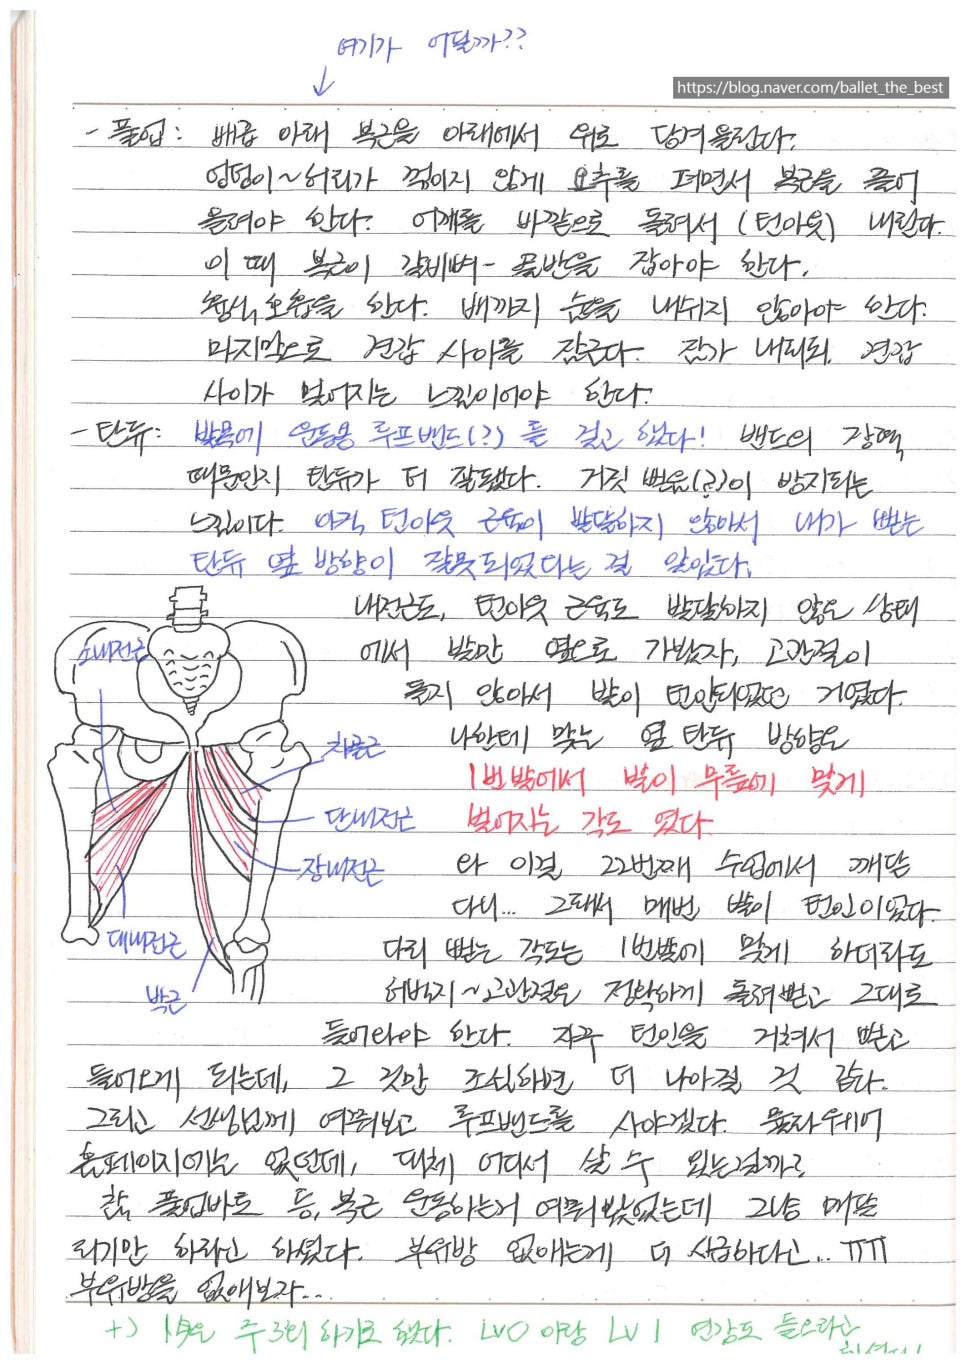 여기가 어딜까??
https://blog.naver.com/ballet_the_best
- 풀업: 배꼽 아래 복근을 아래에서 위로 당겨올린다.
엉덩이~허리가 꺾이지 않게 요추를 펴면서 복근을 끌어
올려야 한다. 어깨를 바깥으로 돌려서 (턴아웃) 내린다.
이 때 복근이 갈비뼈-골반을 잡아야 한다.
흉식호흡을 한다. 배까지 숨을 내쉬지 않아야 한다.
마지막으로 견갑 사이를 잠근다. 잠가 내리되, 견갑
사이가 멀어지는 느낌이어야 한다.
- 탄듀: 발목에 운동용 루프밴드(?)를 걸고 했다! 밴드의 장력
때문인지 탄듀가 더 잘됐다. 거짓 뻗음(?)이 방지되는
느낌이다. 아직 턴아웃 근육이 발달하지 않아서 내가 뻗는
탄듀 옆 방향이 잘못되었다는 걸 알았다.
내전근도, 턴아웃 근육도 발달하지 않은 상태
에서 발만 옆으로 가봤자, 고관절이
돌지 않아서 발이 턴인되었던 거였다.
나한테 맞는 옆 탄듀 방향은
1번발에서 발이 무릎에 맞게
벌어지는 각도 였다.
와 이걸 22번째 수업에서 깨닫
다니... 그래서 매번 발이 턴인이었다.
다리 뻗는 각도는 1번발에 맞게 하더라도
허벅지~고관절은 정확하게 돌려뻗고 그대로
들어와야 한다. 자꾸 턴인을 거쳐서 뻗고
들어오게 되는데, 그 것만 조심하면 더 나아질 것 같다.
그리고 선생님께 여쭤보고 루프밴드를 사야겠다.
홈페이지에는 없던데, 대체 어디서 살 수 있는걸까?
참, 풀업바로 등, 복근 운동하는거 여쭤봤었는데 그냥 매달
리기만 하라고 하셨다. 부유방 없애는게 더 시급하다고... ㅠㅠ
부유방을 없애보자..
+) 1월은 주3회 하기로 했다. LV0 이랑 LV1 연강도 들으라고
하셨다!
소내전근
치골근
단내전근
장내전근
대내전근
박근